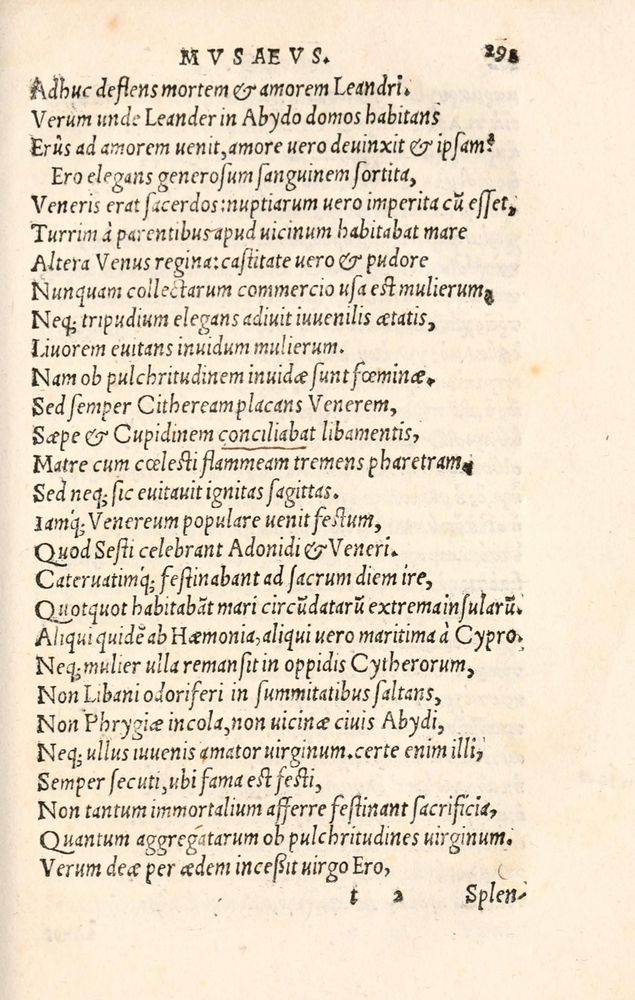 MVSAEVS. 298
Adhuc deflens mortem & amorem Leandri.
Verum unde Leander in Abydo domos habitans
Erūs ad amorem uenit, amore uero deuinxit & ipsam?
Ero elegans generosum sanguinem sortita,
Veneris erat sacerdos: nuptiarum uero imperita cū esset,
Turrim à parentibus apud uicinum habitabat mare
Altera Venus regina: castitate uero & pudore
Nunquam collectarum commercio usa est mulierum,
Neq; tripudium elegans adiuit iuuenilis ætatis,
Liuorem euitans inuidum mulierum.
Nam ob pulchritudinem inuidæ sunt fœminæ.
Sed semper Cithereamplacans Venerem,
Sæpe & Cupidinem conciliabat libamentis,
Matre cum cœlesti flammeam tremens pharetram,
Sed neq; sic euitauit ignitas sagittas.
Iamq́; Venereum populare uenit festum,
Quod Sesti celebrant Adonidi & Veneri.
Cateruatimq́; festinabant ad sacrum diem ire,
Quotquot habitabāt mari circūdatarū extrema insularū.
Aliqui quidē ab Hæmonia, aliqui uero maritima à Cypro.
Neq; mulier ulla remansit in oppidis Cytherorum,
Non Libani odoriferi in summitatibus saltans,
Non Phrygiæ incola, non uicinæ ciuis Abydi,
Neq; ullus iuuenis amator uirginum. certe enim illi,
Semper secuti, ubi fama est festi,
Non tantum immortalium afferre festinant sacrificia,
Quantum aggregatarum ob pulchritudines uirginum.
Verum deæ per ædem inceßit uirgo Ero,
t 2 Splen-